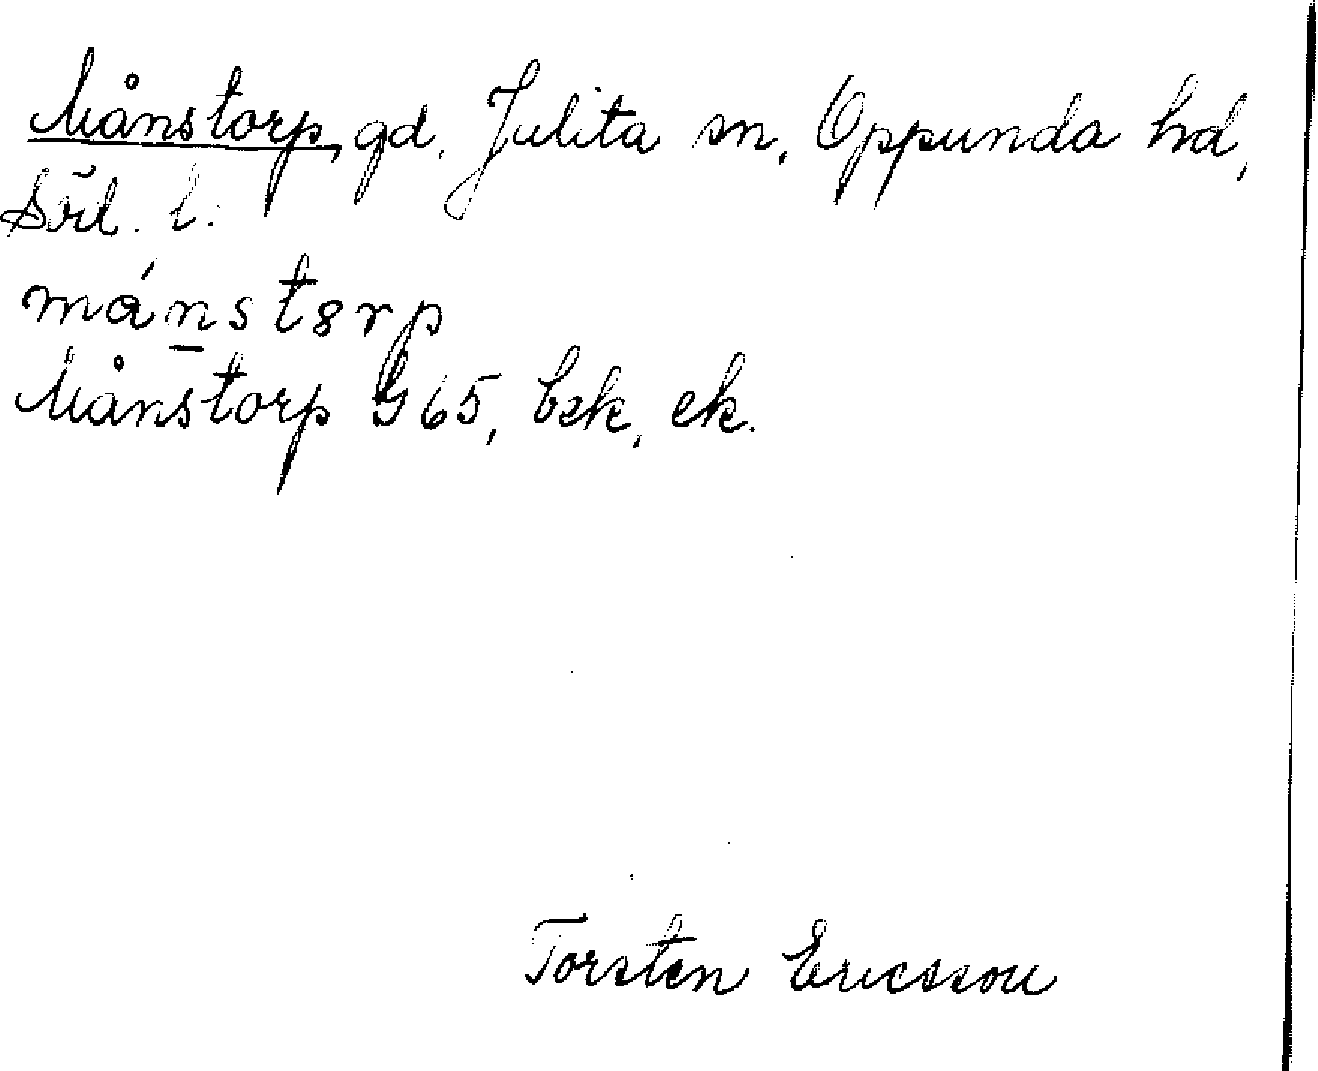 Månstorp, gd, Julita sn, Oppunda hd,
Söd. l.
mánstȣrp
Månstorp G65, bek, ek.
Torsten Ericsson